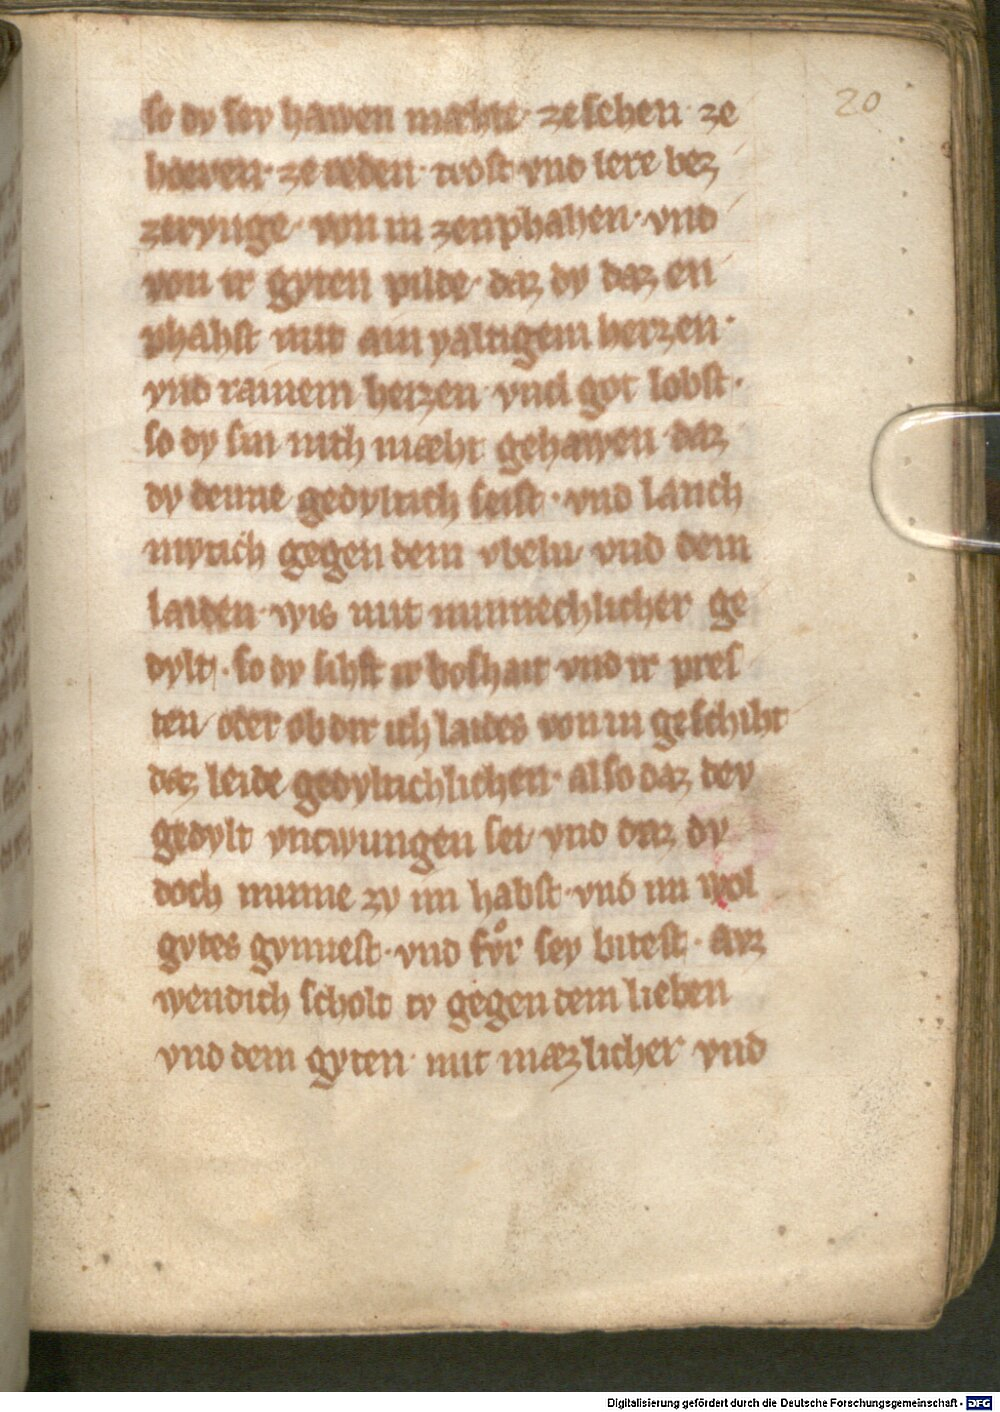 20
so dy sey hawen mæht · ze sehen · ze
hœren · ze reden · trost vnd lere bez
zerynge · von in zenphahen · vnd
von ir gyten pilde · daz dy daz en
phahst mit ain yaltigem herzen ·
vnd rainem herzen · vnd got lobst ·
so dy sin nith mæht gehawen daz
dy denne gedyltich seist · vnd lanch
mytich gegen dem vbeln vnd dem
laiden · wis mit minnechlicher ge
dylt · so dy sihst ir boshait vnd ir pres
ten oder ob dir ich laides von in geschiht
daz leide gedyltichlichen · also daz dey
gedylt vntwungen sei vnd daz dy
doch minne zy im habst · vnd im wol
gytes gynnest · vnd fyͦr sey bitest · avz
wendich scholt dy gegen dem lieben
vnd dem gyten · mit mæzlicher vnd
Digitalisierung gefördert durch die Deutsche Forschungsgemeinschaft - DFG